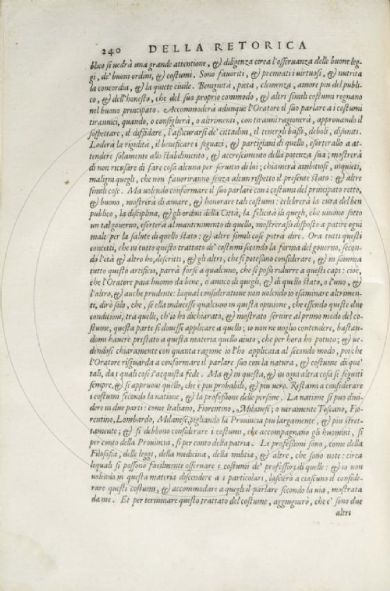 240 DELLA RETORICA
blico si uedrà una grande attentione, & diligenza circa l'osseruanza delle buone leg-
gi, de' buoni ordini, & costumi. Sono fauoriti, & premiati i virtuosi, & nutrita
la concordia, & la quiete ciuile. Benignità, pietà, clemenza, amore piu del publi-
co, & dell'honesto, che del suo proprio commodo, & altri simili costumi regnano
nel buono principato. Accommoderà adunque l'Oratore il suo parlare a i costumi
tirannici, quando, o consiglierà, o altrimenti, con tiranni ragionerà, approuando il
sospettare, il diffidare, l'assicurarsi de' cittadini, il tenergli bassi, deboli, disuniti.
Loderà la rigidità, il beneficare i seguaci, & partigiani di quello, esortarallo a at-
tendere solamente allo stabilimento, & accrescimento della potenza sua; mostrerà
di non ricusare di fare cosa alcuna per seruitio di lui; chiamerà ambitiosi, inquieti,
maligni quegli, che non fauoriranno senza alcun rispetto il presente stato: & altre
simili cose. Ma uolendo conformare il suo parlare co i costumi del principato retto,
& buono, mostrerà di amare, & honorare tali costumi: celebrerà la cura del ben
publico, la disciplina, & gli ordini della Città; la felicità di quegli, che uiuono sotto
un tal gouerno, esorterà al mantenimento di quello, mostrerassi disposto a patire ogni
male per la salute di quello stato: & altre simili cose potrà dire. Ora tutti questi
concetti, che in tutto questo trattato de' costumi secondo la forma del gouerno, secon-
do l'età & altro ho descritti, & gli altri, che si potessino considerare, & in somma
tutto questo artificio, parrà forse a qualcuno, che si possa ridurre a questi capi: cioè,
che l'Oratore paia huomo da bene, o amico di quegli, & di quello stato, o l'uno, &
l'altro, & anche prudente: la qual consideratione non uolendo io esaminare altrimen-
ti, dirò solo, che, se ella inducesse qualcuno in questa opinione, che essendo queste due
conditioni, tra quelle, ch'io ho dichiarato, & mostrato seruire al primo modo del co-
stume, questa parte si douesse applicare a quello; io non ne uoglio contendere, bastan-
domi hauere prestato a questa materia quello aiuto, che per hora ho potuto; & ue-
dendosi chiaramente con quanta ragione io l'ho applicata al secondo modo, poiche
l'Oratore risguarda a conformare il parlare suo con la natura, & costume di que'
tali, da i quali cosi s'acquista fede. Ma & in questa, & in ogni altra cosa si seguiti
sempre, & si approui quello, che è piu probabile, & piu uero. Restami a considerare
i costumi secondo la natione, & la professione delle persone. La natione si può diui-
dere in due parti: come Italiano, Fiorentino, Milanese; o ueramente Toscano, Fio-
rentino, Lombardo, Milanese, pigliando la Prouincia piu largamente, & piu stret-
tamente; & si debbono considerare i costumi, che accompagnano gli huomini, si
per conto della Prouincia, si per conto della patria. Le professioni sono, come della
Filosofia, delle leggi, della medicina, della militia, & altre, che sono note: circa
lequali si possono facilmente osseruare i costumi de' professori di quelle: & io non
uolendo in questa materia discendere a i particolari, lascerò a ciascuno il conside-
rare questi costumi, & accommodare a quegli il parlare secondo la uia, mostrata
da me. Et per terminare questo trattato del costume, aggiugnerò, che e' sono due
altri